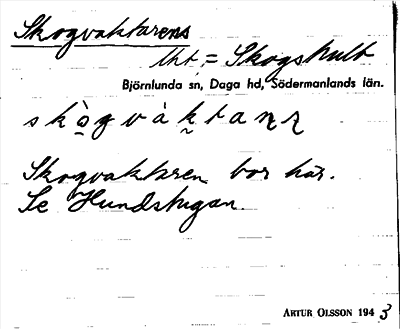 Skogvaktarens
lht. = Skogshult
Björnlunda sn, Daga hd, Södermanlands län.
skògvàktanɀ
Skogvaktaren bor här.
Se Hundstugan.
ARTUR OLSSON 1943